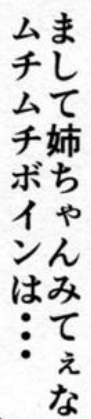 まして姉ちゃんみてぇな
ムチムチボインは・・・